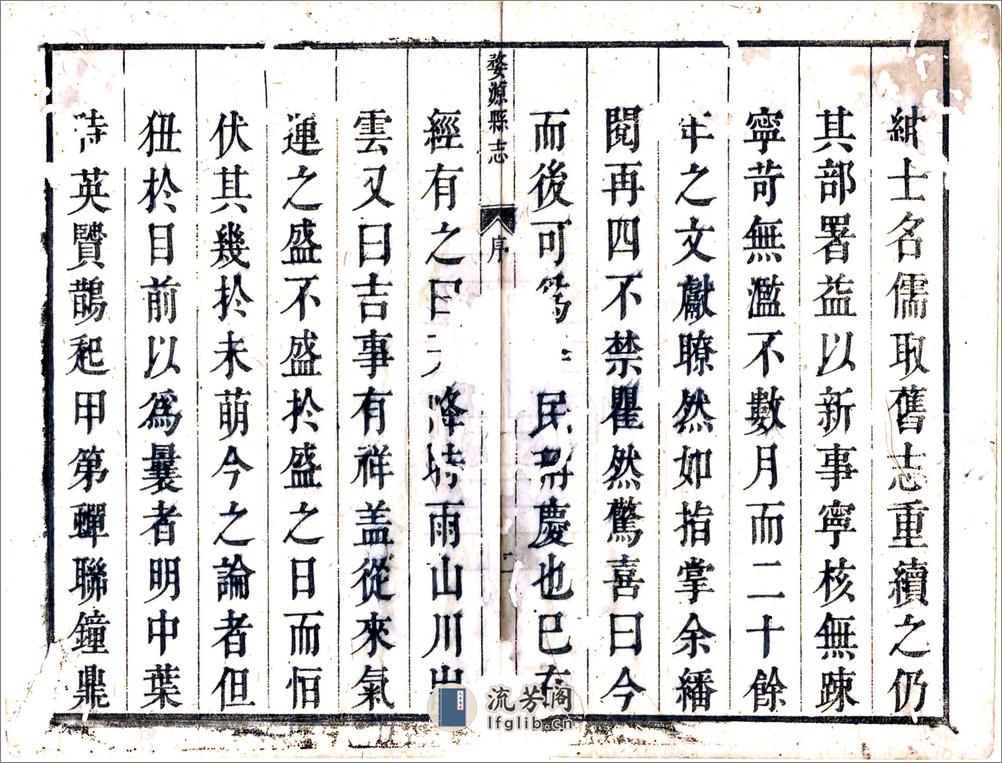 紳士名儒取舊志重續之仍
其部署益以新事寧核無踈
寧苛無濫不數月而二十餘
年之文獻瞭然如指掌余繙
閱再四不禁瞿然驚喜曰今
而後可為民慶也已
婺源縣志
序
經有之曰天降時雨山川出
雲又曰吉事有祥盖從來氣
運之盛不盛於盛之日而恒
伏其幾於未萌今之論者但
狃於目前以為曩者明中葉
時英賢鵲起甲第蟬聯鐘鼎
流芳阁
lfglib.cn